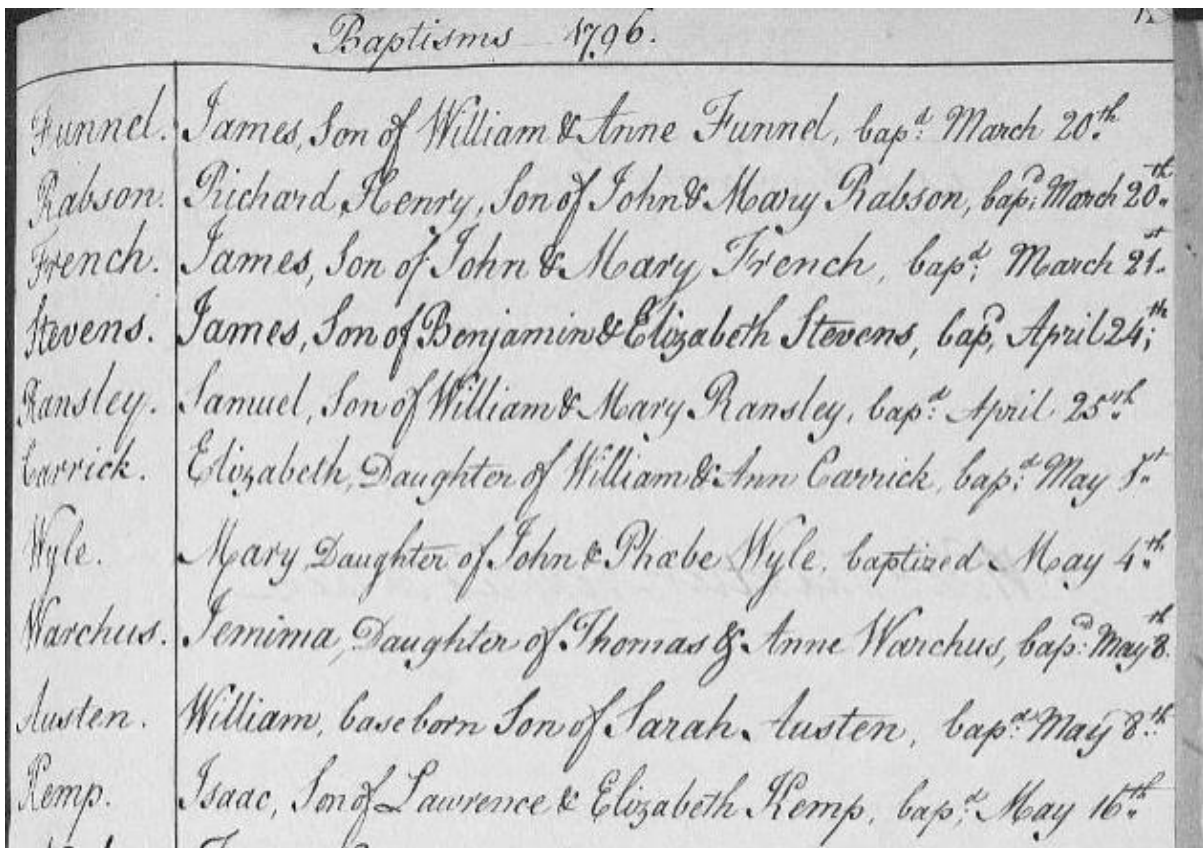 Baptisms 1796.
Funnel. James, Son of William & Anne Funnel, bap.d March 20.th
Rabson. Richard Henry, Son of John & Mary Rabson, bap.d March 20.th
French. James, Son of John & Mary French, bap.d March 21.st
Stevens. James, Son of Benjamin & Elizabeth Stevens, bap.d April 24.th
Ransley. Samuel, Son of William & Mary Ransley, bap.d April 25.th
Carrick. Elizabeth, Daughter of William & Ann Carrick, bap.d May 1.st
Wyle. Mary Daughter of John & Phœbe Wyle, baptized May 4.th
Warchus. Jemima, Daughter of Thomas & Anne Warchus, bap.d May 8.th
Austen. William, base born Son of Sarah Austen, bap.d May 8.th
Kemp. Isaac, Son of Lawrence & Elizabeth Kemp, bap.d May 16.th